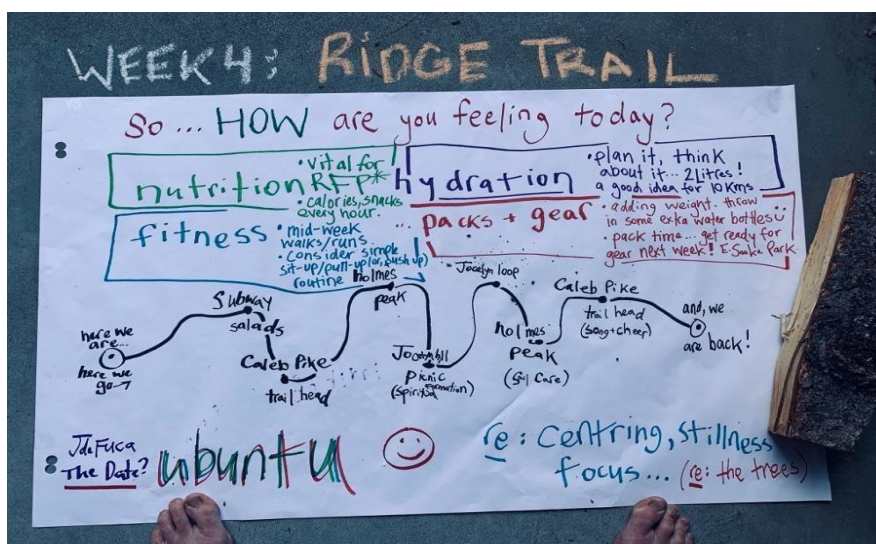 WEEK 4: RIDGE TRAIL
So... HOW are you feeling today?
nutrition
• vital for
RFP*
• calories, snacks
every hour.
hydration
• plan it, think
about it... 2 Litres!
a good idea for 10 Kms
fitness
• mid-week
walks/runs
• consider simple
sit-up/pull-up (or, push up)
routine
... packs + gear
• adding weight. throw
in some extra water bottles
• pack time... get ready for
gear next week! E. Sooke Park
here we
are...
here we
go→
Subway
salads
Caleb Pike
trail head
holmes
peak
Jocelyn hill
Picnic
(spiritual formation)
Jocelyn loop
holmes
peak
(Self Care)
Caleb Pike
trail head
(song + cheer)
and, we
are back!
J de FUCA
The Date?
ubuntu
re: centring, stillness
focus... (re: the trees)